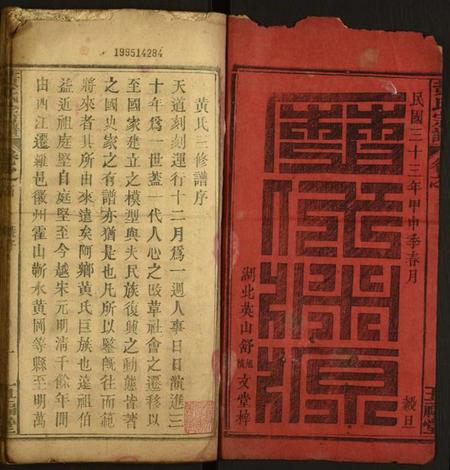 民國三十三年甲申季春月
穀旦
湖北英山舒
文堂梓
199514284
黃氏三修譜序
天道刻刻運行十二月爲一週人事日日演進三
十年爲一世蓋一代人心之改革社會之遷移以
至國家建立之模型與夫民族復興之動態皆著
之國史家之有譜亦猶是也凡所以鑒既往而範
將來者其所由來遠矣阿鄉黃氏巨族也遠祖伯
益近祖庭堅自庭堅至今越宋元明清千餘年間
由西江遷羅邑徽州霍山蘄水黃岡等縣至明萬